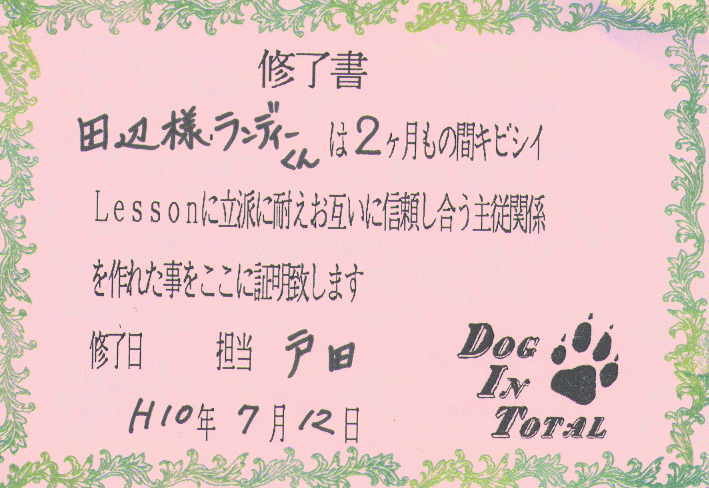 修了書
田辺様・ランディーくん は2ヶ月もの間キビシイ
Lessonに立派に耐えお互いに信頼し合う主従関係
を作れた事をここに証明致します
修了日 担当 戸田
H10年 7月 12日
DOG
IN
TOTAL